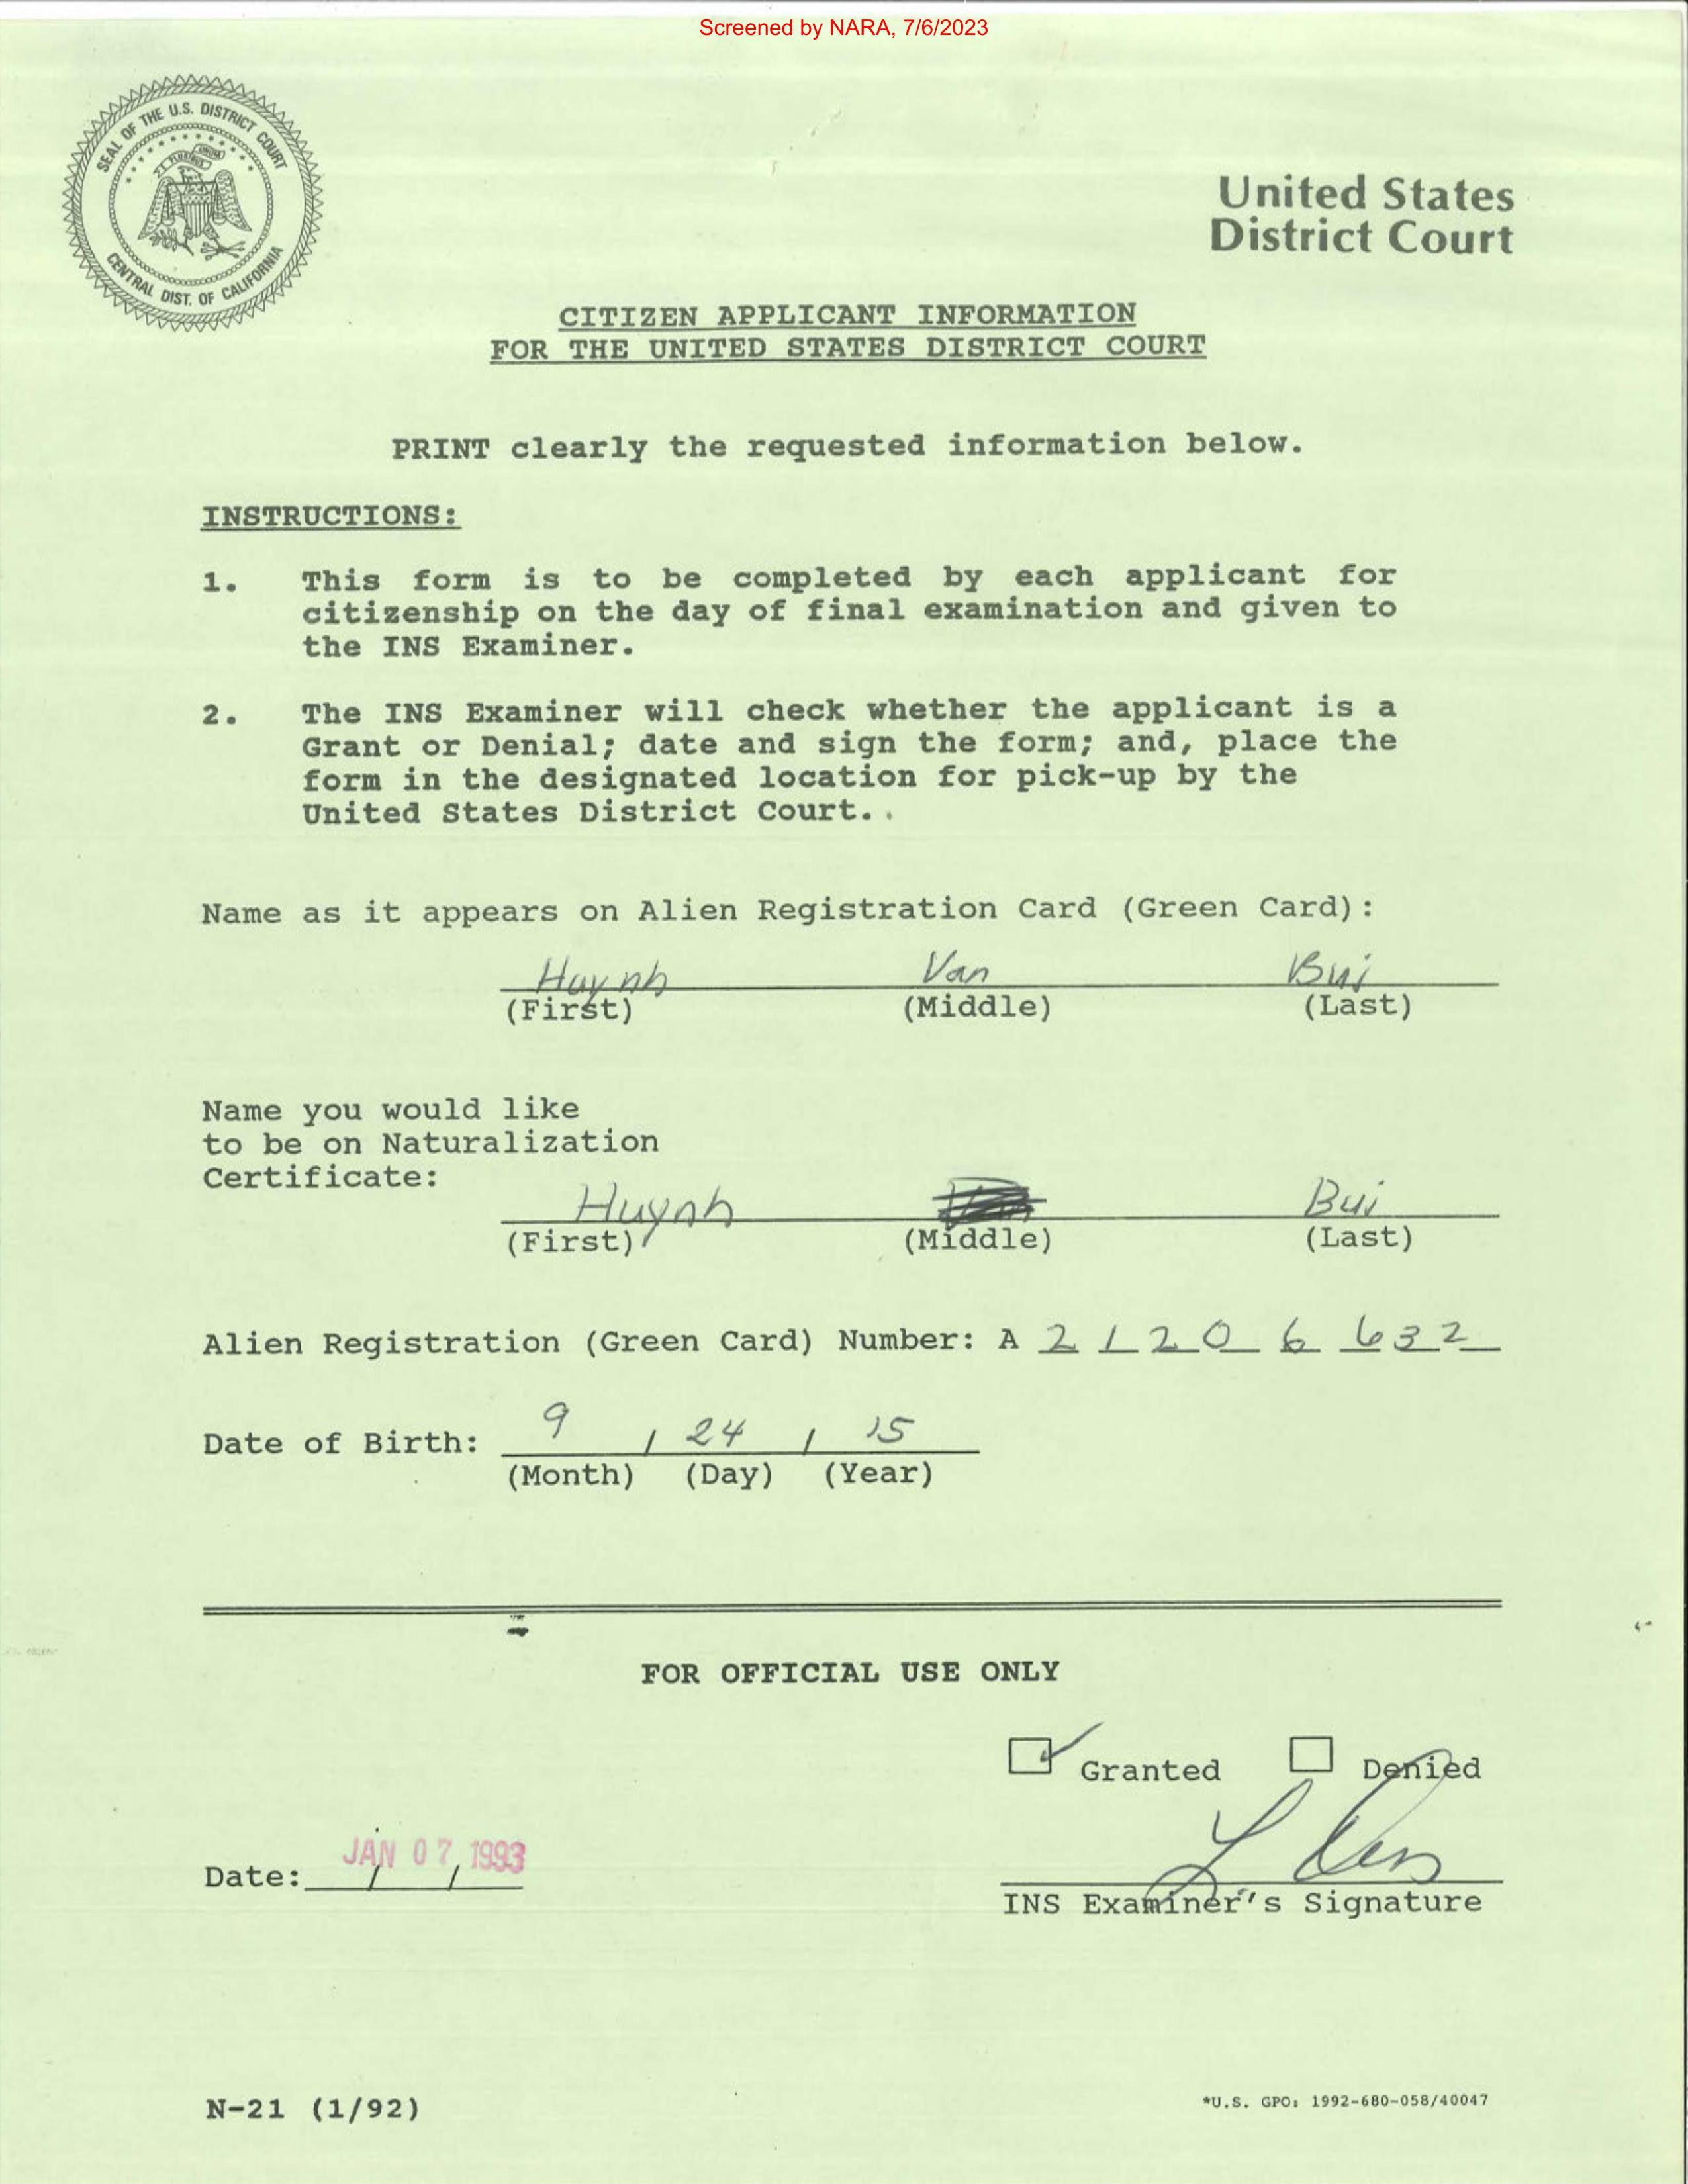 Screened by NARA, 7/6/2023
SEAL OF THE U.S. DISTRICT COURT
E PLURIBUS UNUM
CENTRAL DIST. OF CALIFORNIA
United States
District Court
CITIZEN APPLICANT INFORMATION
FOR THE UNITED STATES DISTRICT COURT
PRINT clearly the requested information below.
INSTRUCTIONS:
1. This form is to be completed by each applicant for
citizenship on the day of final examination and given to
the INS Examiner.
2. The INS Examiner will check whether the applicant is a
Grant or Denial; date and sign the form; and, place the
form in the designated location for pick-up by the
United States District Court.
Name as it appears on Alien Registration Card (Green Card):
Huynh Van Bui
(First) (Middle) (Last)
Name you would like
to be on Naturalization
Certificate:
Huynh Bui
(First) (Middle) (Last)
Alien Registration (Green Card) Number: A 2 1 2 0 6 6 3 2
Date of Birth: 9 / 24 / 15
(Month) (Day) (Year)
FOR OFFICIAL USE ONLY
Granted Denied
Date: JAN 07 1993
INS Examiner's Signature
N-21 (1/92)
*U.S. GPO: 1992-680-058/40047